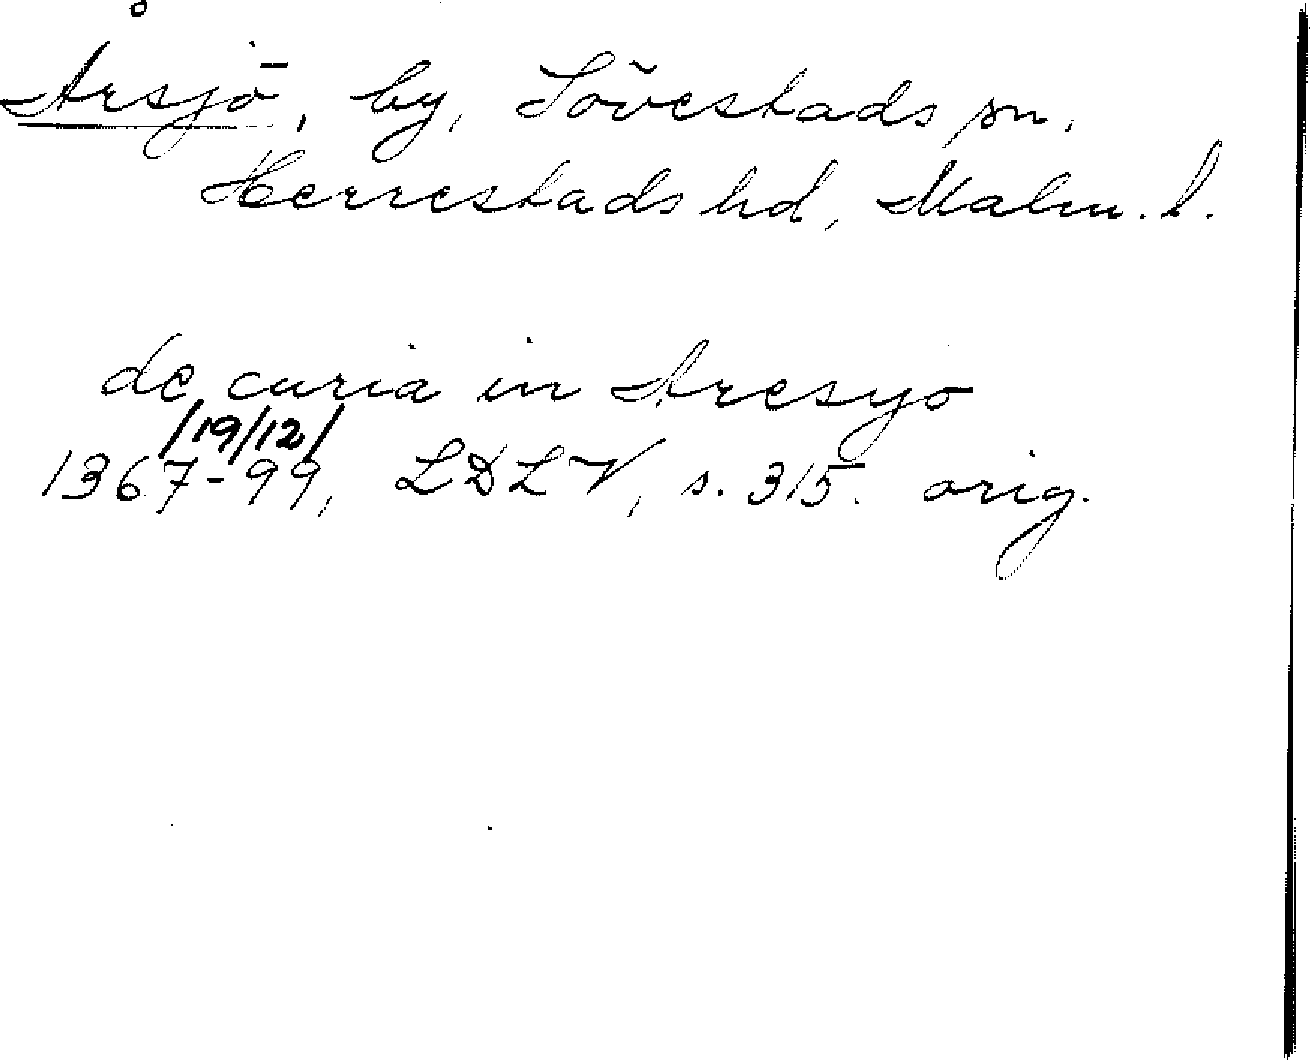 Årsjö, by, Lövestads sn.
Herrestads hd, Malm. l.
de curia in Aresyo
/19/12/
1367-99, LDLV, s. 315. orig.